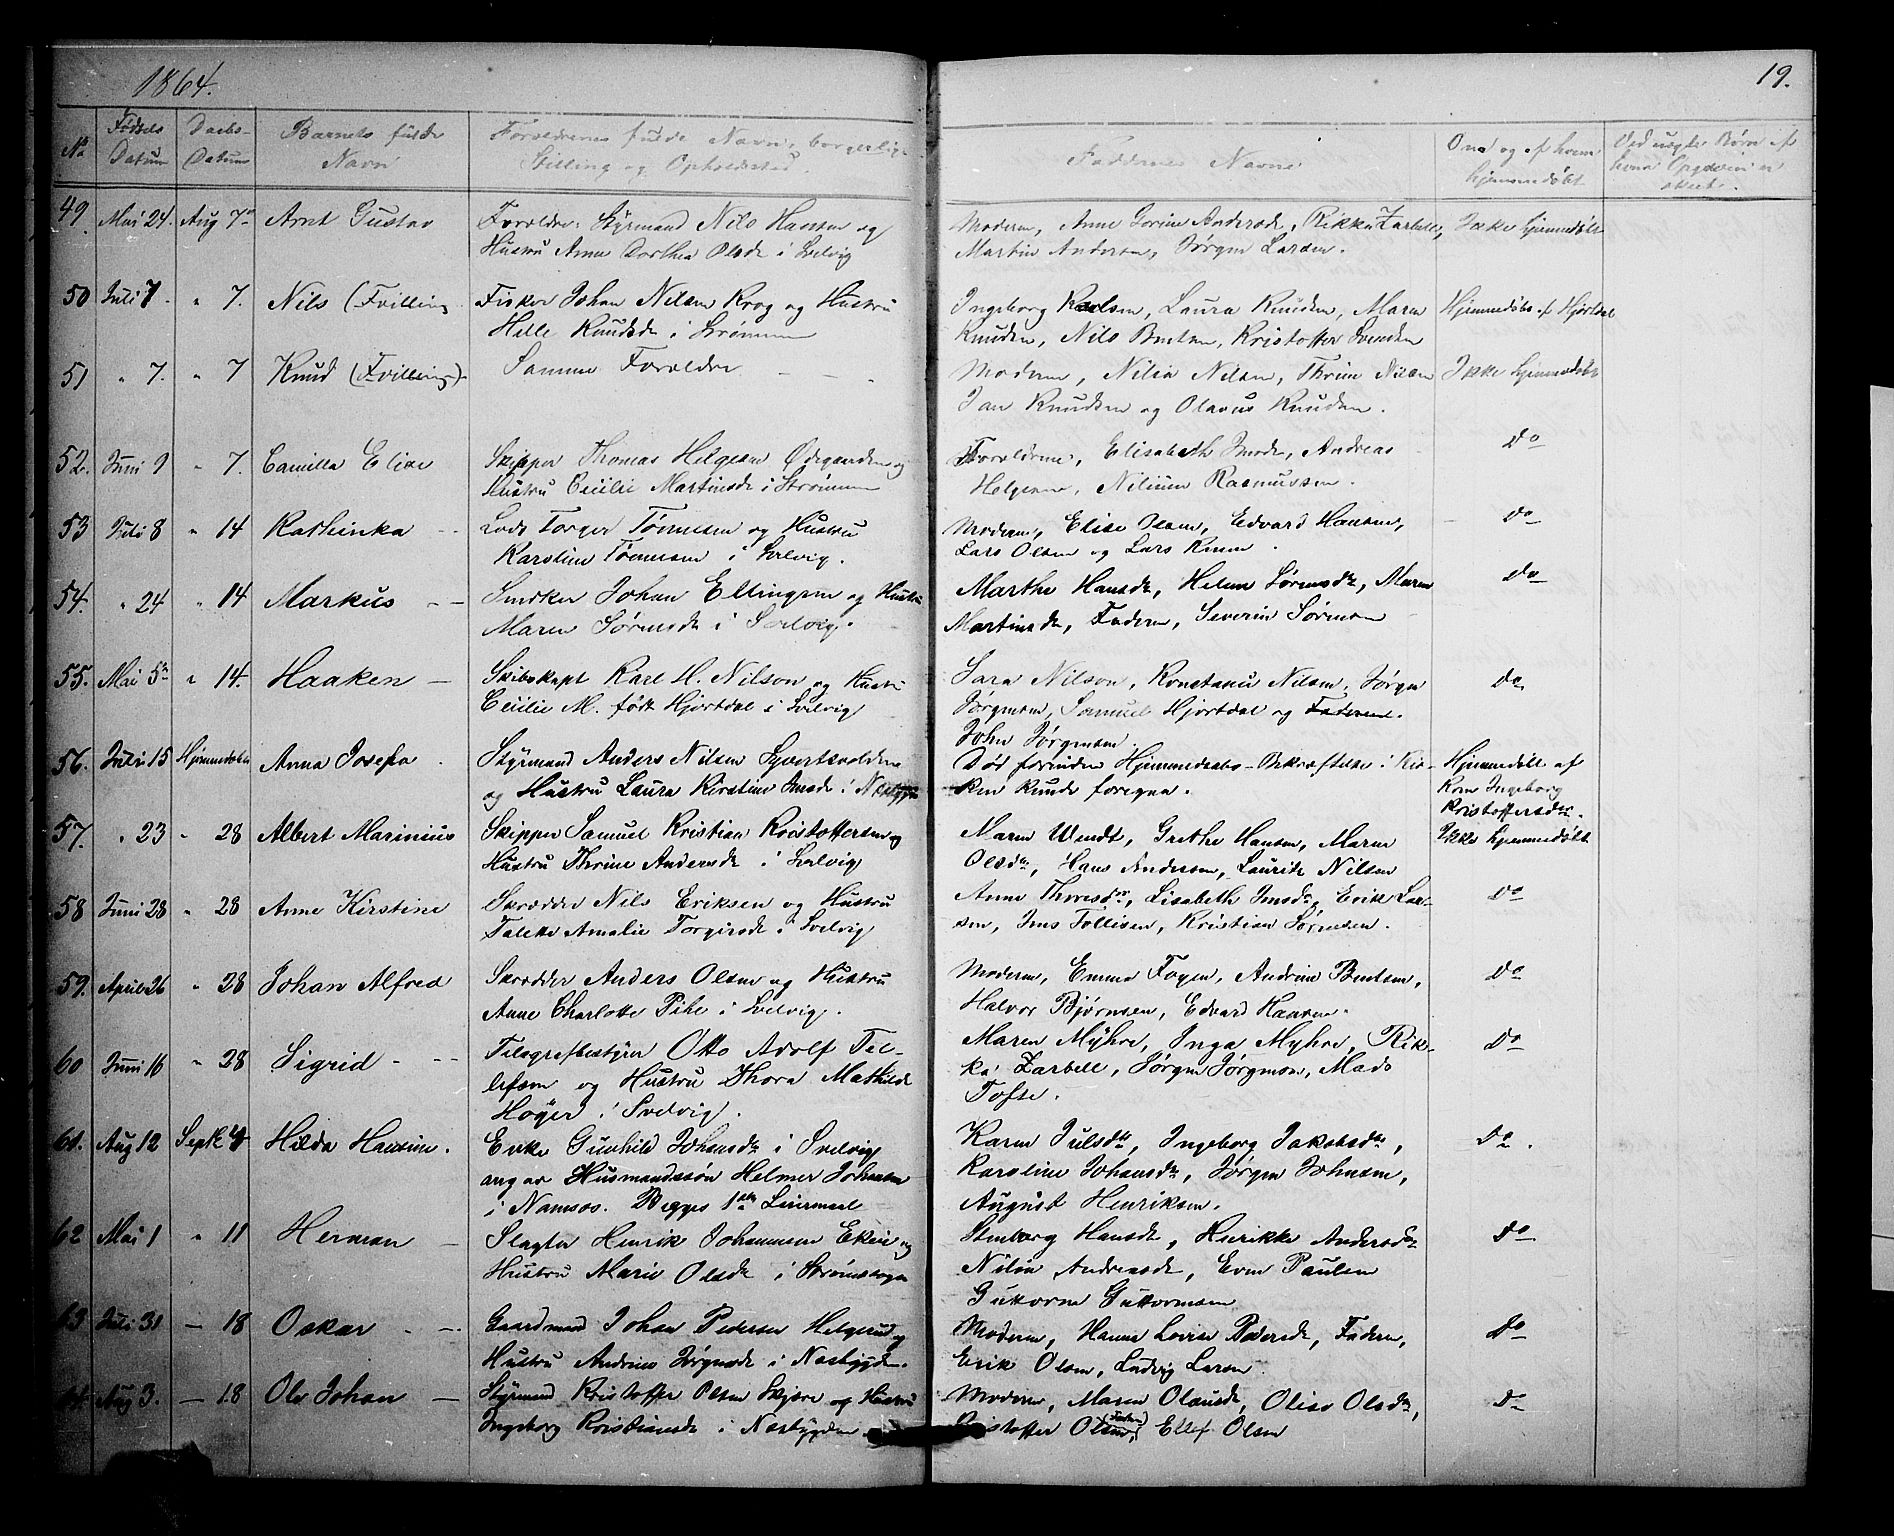 1864.
19.
No
Fødsels Datum
Daabs-Datum
Barnets fulde Navn
Forældrenes fulde Navn, borgerlige Stilling og Opholdssted.
Faddernes Navne
Om og af hvem hjemmedøbt
Ved uægte Børn af
49. Mai 24. Aug 7de Arnt Gustav
Forældre: Styrmand Nils Hansen og
Hustru Anne Dorthea Olsdr i Svelvig
Moderen, Anne Andersdr, Rikka Zarbell,
Martin Andersen, Jørgen Larsen.
Ikke hjemmedøbt
50 Juli 7. " 7. Nils (Tvilling
Fisker Johan Nilsen Krog og Hustru
Helle Knudsdr i Strømmen
Ingeborg Karlsen, Laura Knudsen, Maren
Knudsen, Nils Bentsen, Kristoffer Svendsen
Hjemmedøbt af Hjortdal
51 " 7. " 7 Knud (Tvilling)
Samme Forældre
Moderen, Nilia Nilsen, Thrine Nilsen
Jan Knudsen og Olavus Knudsen.
Ikke hjemmedøbt
52. Juni 9 " 7. Camilla Elise
Skipper Thomas Helgesen Ødegaarden og
Hustru Cecilie Martinsdr i Strømmen
Forældrene, Elisabeth Jensdr, Andreas
Helgesen, Rasmussen.
Do
53 Juli 8 " 14 Kathinka
Lods Torger Tønnesen og Hustru
Karstine Tønnesen i Svelvig.
Moderen, Elise Olsen, Edvard Hansen,
Lars Olsen og Lars
Do
54. " 24 " 14 Markus
Snedker Johan Ellingsen og Hustru
Maren Sørensdr i Svelvig.
Marthe Hansdr, Helene Sørensdr, Maren
Martinsdr, Faderen, Severin Sørensen
Do
55. Mai 5te " 14. Haaken
Skibskapt Karl H. Nilson og Hustru
Cecilie M. født Hjortdal i Svelvig
Sara Nilson, Konstance Nilsen, Jørgen
Jørgensen, Samuel Hjortdal og Faderen.
John Jørgensen.
Do
56. Juli 15 Hjemmedøbt Anna Josefa
Styrmand Anders Nilsen
og Hustru Laura Kirstine Jensdr i Nesbygden
Død forinden Hjemmedaabs-Bekræftelse i Kir-
ken kunde foregaa.
Hjemmedøbt af
Kone Ingeborg
Kristoffersdr.
57. " 23 " 28 Albert Marinius
Skipper Samuel Kristian Kristoffersen og
Hustru Thrine Andersdr i Svelvig
Maren Wendt, Grethe Hansen, Maren
Olsdtr, Hans Andersen, Lauritz Nilsen
Ikke hjemmedøbt
58 Juni 28 " 28 Anne Kirstine
Skrædder Nils Eriksen og Hustru
Talette Amalie Torgersdr i Svelvig
Anne Thoresdr, Lisabeth Jensdr, Erik Lar-
sen, Jens Tollisen, Kristian Sørensen.
Do
59. April 26 " 28 Johan Alfred
Skrædder Anders Olsen og Hustru
Anne Charlotte Pihl i Svelvig.
Moderen, Emma Fogen, Andrine Bentsen,
Halvor Bjørnsen, Edvard Hansen.
Do
60 Juni 16 " 28 Sigrid
Telegrafbestyrer Otto Adolf Tel-
lefsen og Hustru Thora Mathilde
Høyer i Svelvig.
Maren Myhre, Inga Myhre, Rik-
ka Zarbell, Jørgen Jørgensen, Mads
Tofte.
Do
61. Aug 12 Septr 4 Hilda Hansine.
Enke Gunhild Johansdr i Svelvig
angav Husmandssøn Helmer Johansen
i Namsos. Begges 1ste Leiermaal
Karen Julsdtr, Ingeborg Jakobsdtr,
Karoline Johansdtr, Jørgen Johnsen,
August Henriksen.
Do.
62 Mai 1 " 11 Herman
Slagter Henrik Johannesen og
Hustru Marie Olsdr i
Hansdr, Henrikke Andersdtr
Nilia Andreasdr, Even Paulsen
Guttorm Guttormsen
Do
63 Juli 31 — 18 Oskar
Gaardmand Johan Pedersen Helgerud og
Hustru Andrine Jørgensdr i Nesbygden.
Moderen, Hanne Lovise Pedersdr, Faderen,
Erik Olsen, Ludvig Larsen
Do
64. Aug 3. — 18 Ole Johan
Styrmand Kristoffer Olsen Skjære og Hustru
Ingeborg Kristiansdr i Nesbygden
Moderen, Maren Olausdr, Olise Olsdtr,
Kristoffer Olsen (Faderen), Ellef Olsen
Do